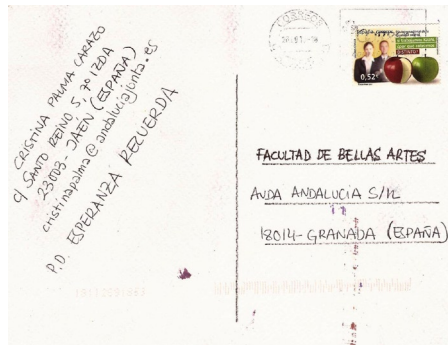 CRISTINA PALMA CARAZO
C/ SANTO REINO 5, 7º IZDA
23003- JAÉN (ESPAÑA)
cristinapalma@andaluciajunta.es
P.D. ESPERANZA RECUERDA
0,52€
FACULTAD DE BELLAS ARTES
AVDA ANDALUCÍA S/N
18014- GRANADA (ESPAÑA)